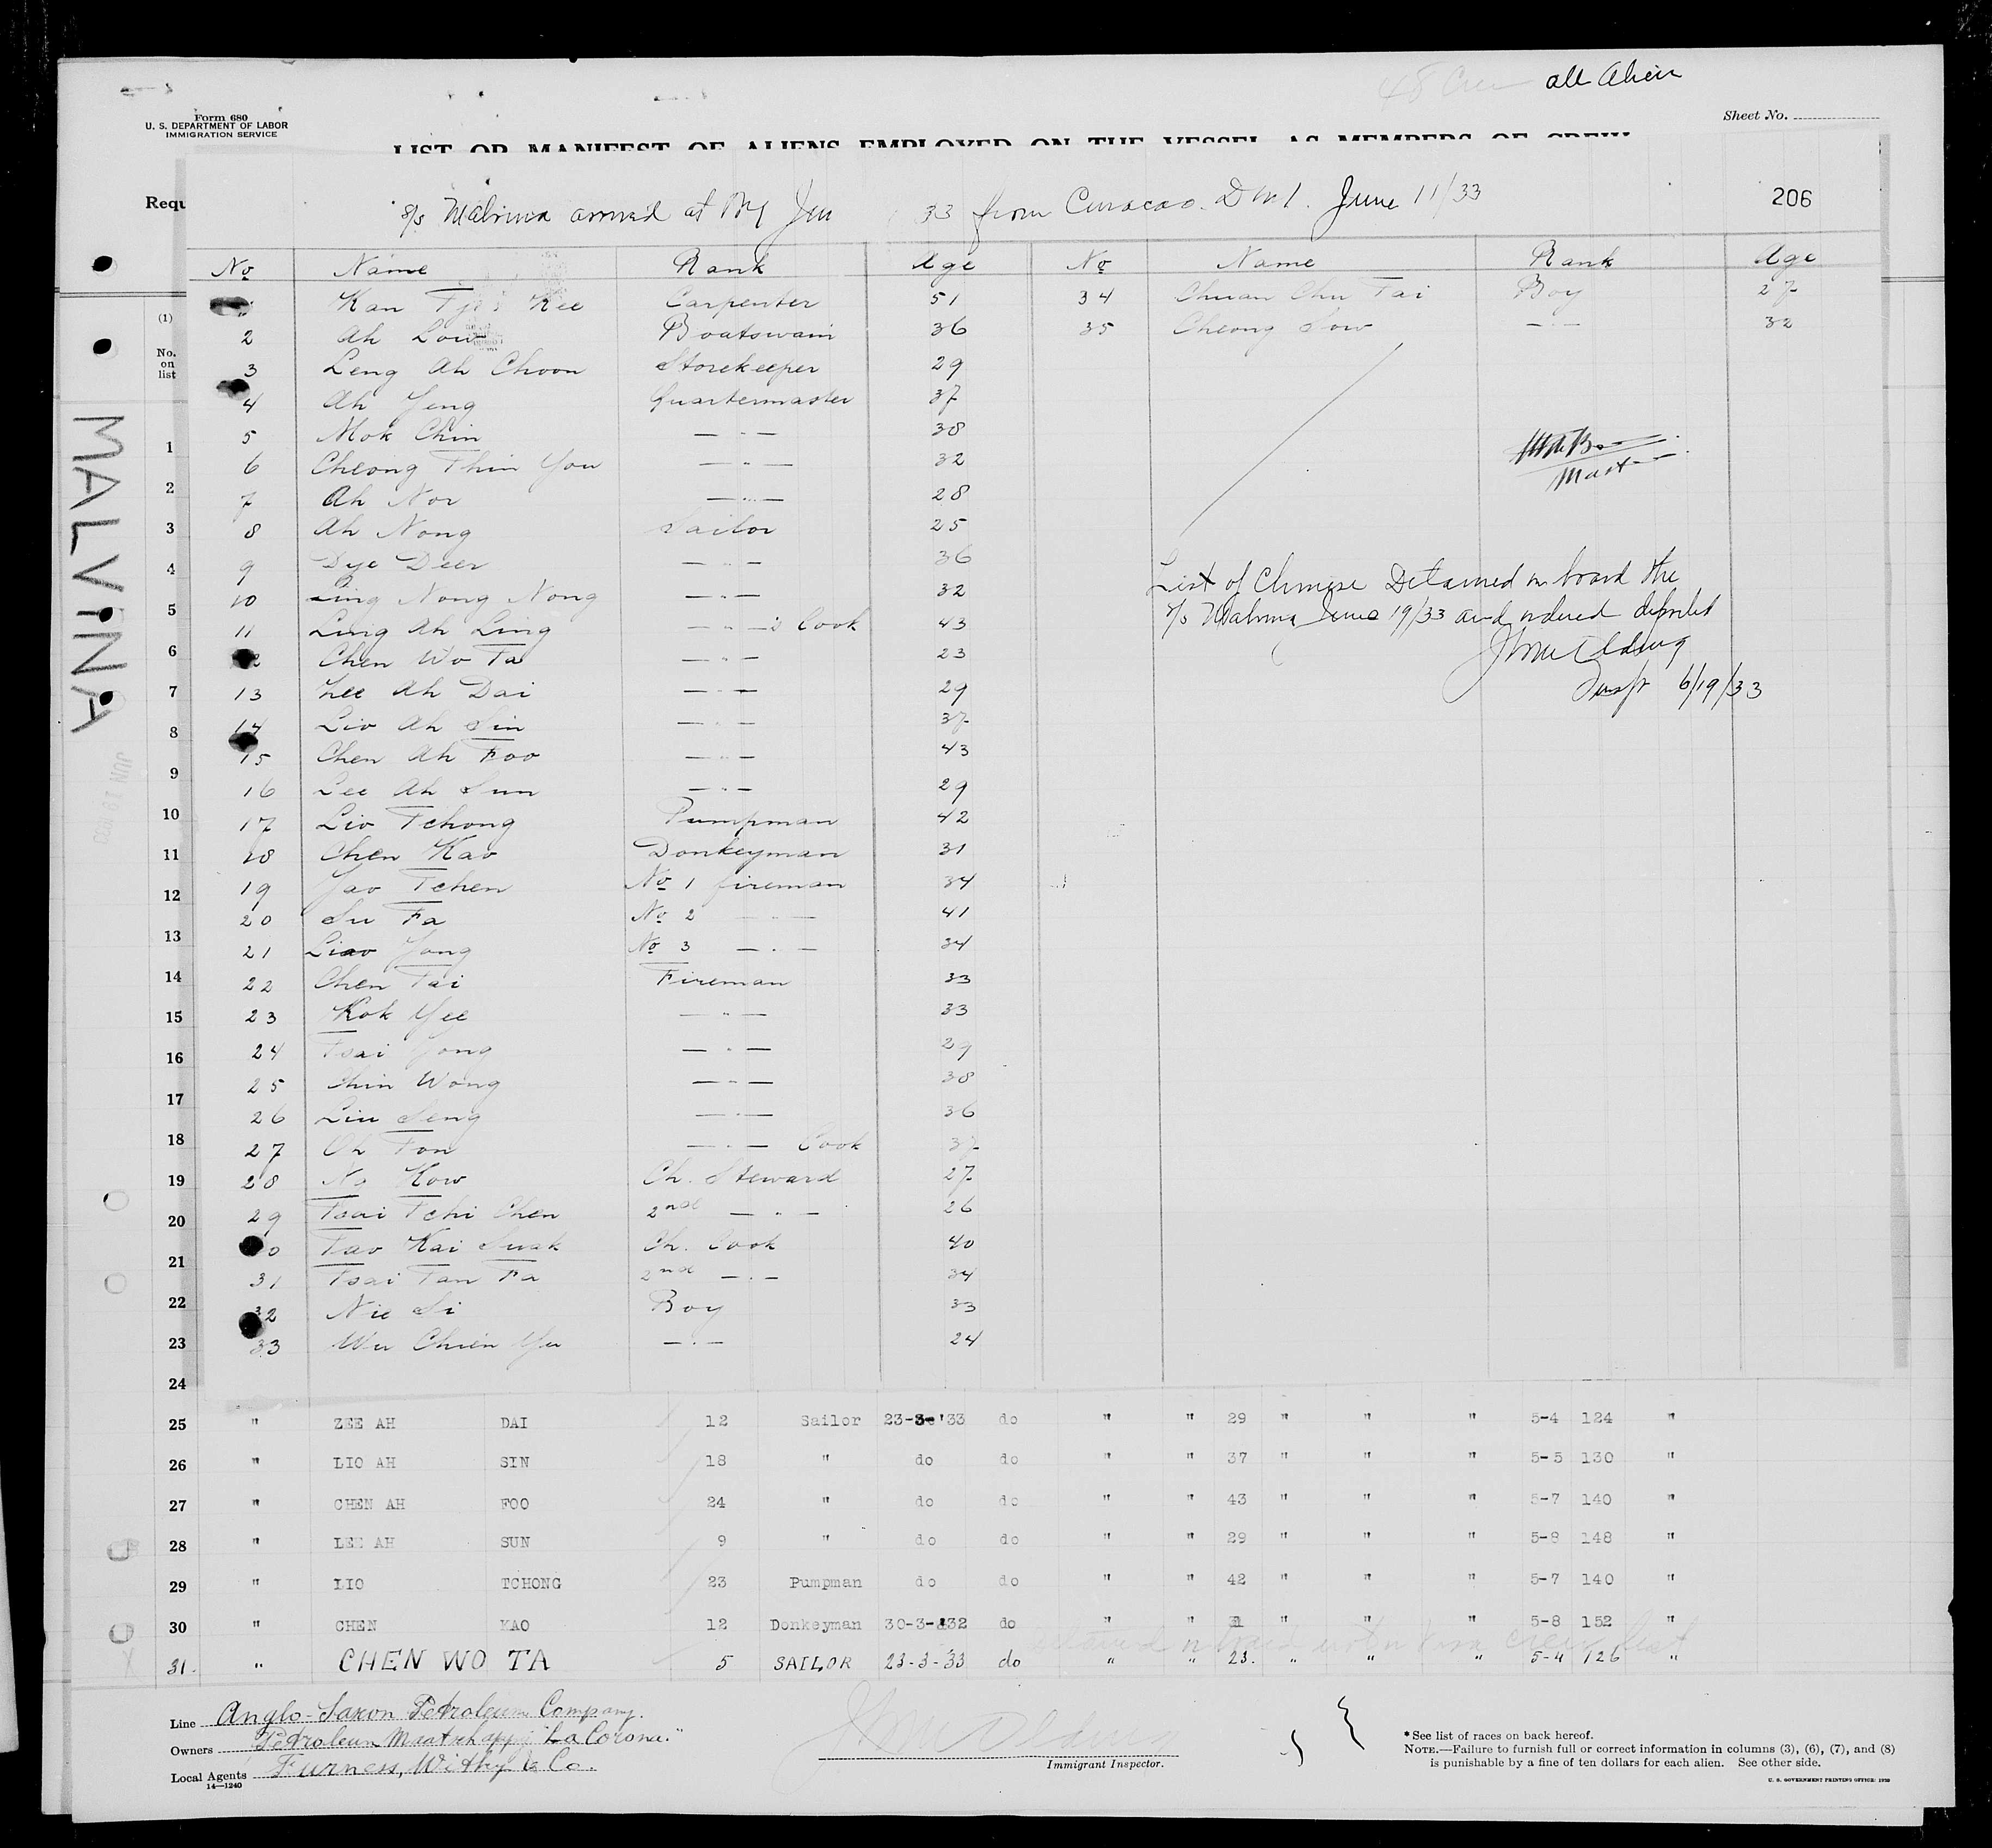 all Alien
Form 680
U. S. DEPARTMENT OF LABOR
IMMIGRATION SERVICE
Sheet No.
LIST OR MANIFEST OF ALIENS EMPLOYED ON THE VESSEL AS MEMBERS OF CREW
Requ
s/s Malvina arrived at NY Jun 33 from Curacao D.W.I. June 11/33
206
No Name Rank Age No Name Rank Age
Kan Kee Carpenter 51 34 Chuan Chu Tai Boy 27
2 Ah Low Boatswain 36 35 Cheong Sow — 32
3 Leng Ah Choon Storekeeper 29
4 Ah Yeng Quartermaster 37
5 Mok Chin — " — 38
6 Cheong Thin You — " — 32
7 Ah Nor — " — 28
8 Ah Nong Sailor 25
9 Dye Deer — " — 36
10 Ling Nong Nong — " — 32
11 Ling Ah Ling — " — s Cook 43
Chen Wo Ta — " — 23
13 Zee Ah Dai — " — 29
14 Lio Ah Sin — " — 37
15 Chen Ah Foo — " — 43
16 Lee Ah Sun — " — 29
17 Lio Tchong Pumpman 42
18 Chen Kao Donkeyman 31
19 Yao Tchen No 1 fireman 34
20 Su Fa No 2 — " — 41
21 Liao Yong No 3 — " — 34
22 Chen Tai Fireman 33
23 Kok Yee — " — 33
24 Tsai Yong — " — 29
25 Chin Wong — " — 38
26 Liu Seng — " — 36
27 Oh Fon — " — Cook 37
28 No Kow Ch. Steward 27
29 Tsai Tchi Chen 2nd — " — 26
Tao Kai Suak Ch. Cook 40
31 Tsai Tan Fa 2nd — " — 34
32 Nie Si Boy 33
33 Wu Chien Yu — " — 24
Master
List of Chinese Detained on board the
s/s Malvina June 19/33 and ordered deported
Insp 6/19/33
(1)
No.
on
list
MALVINA
1
2
3
4
5
6
7
8
9
10
11
12
13
14
15
16
17
18
19
20
21
22
23
24
25 " ZEE AH DAI 12 Sailor 23-3-'33 do " " 29 " " " 5-4 124 "
26 " LIO AH SIN 18 " do do " " 37 " " " 5-5 130 "
27 " CHEN AH FOO 24 " do do " " 43 " " " 5-7 140 "
28 " LEE AH SUN 9 " do do " " 29 " " " 5-8 148 "
29 " LIO TCHONG 23 Pumpman do do " " 42 " " " 5-7 140 "
30 " CHEN KAO 12 Donkeyman 30-3-'32 do " " 31 " " " 5-8 152 "
31. " CHEN WO TA 5 SAILOR 23-3-'33 do " " 23. " " " 5-4 126 "
Line Anglo-Saxon Petroleum Company.
Owners Petroleum Maatschappij "La Corona."
Local Agents Furness, Withy & Co.
14—1240
Immigrant Inspector.
* See list of races on back hereof.
NOTE.—Failure to furnish full or correct information in columns (3), (6), (7), and (8)
is punishable by a fine of ten dollars for each alien. See other side.
U. S. GOVERNMENT PRINTING OFFICE: 1932